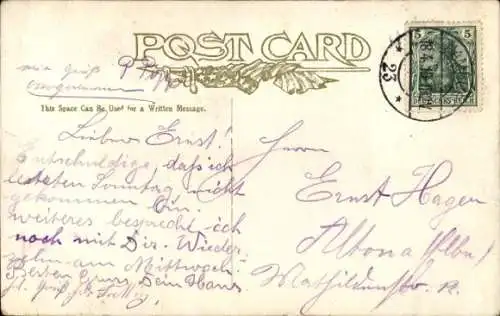 POST CARD
This Space Can Be Used for a Written Message.
5 5
DEUTSCHES REICH
* 23 *
Lieber Ernst!
Entschuldige, daß ich
letzten Sonntag nicht
gekommen bin.
weiteres besprech ich
noch mit Dir. Wieder
am Mittwoch.
Besten Gruss Dein Hans
Herrn
Ernst Hagen
Altona (Elbe)
Mathildenstr.